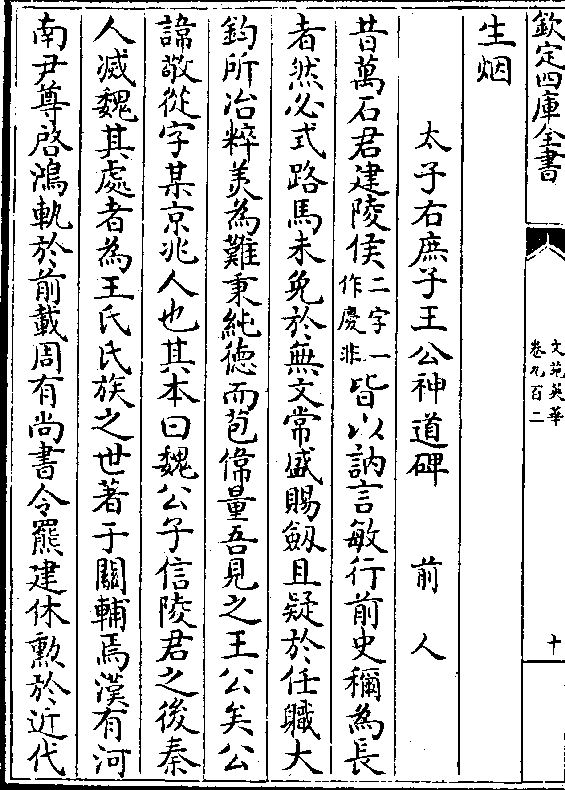 欽定四庫全書
文苑英華
卷九百二
十
生烟
太子右庶子王公神道碑 前人
昔萬石君建陵侯二字一作慶非皆以訥言敏行前史稱為長
者然必式路馬未免於無文常盛賜劔且疑於任職大
鈞所冶粹美為難秉純徳而苞偉量吾見之王公矣公
諱敬從字某京兆人也其本曰魏公子信陵君之後秦
人滅魏其處者為王氏氏族之世著于關輔焉漢有河
南尹尊啓鴻軌於前載周有尚書令羆建休勲於近代